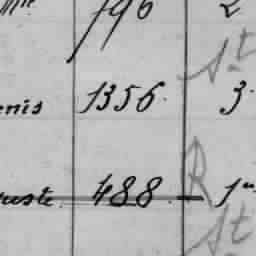 796 2
St
enis 1356. 3.
R
uste 488. 1er
St